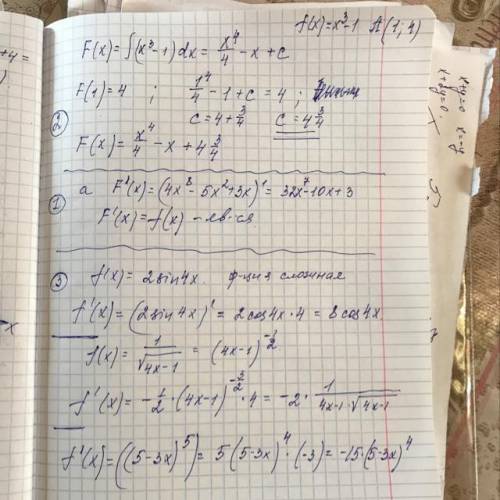 f(x)=x³-1 A(1; 4)
F(x)=∫(x³-1)dx= x⁴/4 -x+c
F(1)=4 ; 1⁴/4 -1+c=4;
c=4+3/4 c=4 3/4
② F(x)= x⁴/4 -x+4 3/4
① a F'(x)=(4x⁸-5x²+3x)'=32x⁷-10x+3
F'(x)=f(x) - яв-ся.
③ f(x)= 2sin4x. ф-ция сложная
f'(x)=(2sin4x)'=2cos4x·4=8cos4x.
f(x)= 1/√(4x-1) =(4x-1)^(-1/2)
f'(x)=-1/2·(4x-1)^(-3/2)·4=-2· 1/((4x-1)·√(4x-1))
f'(x)=((5-3x)⁵)'=5(5-3x)⁴·(-3)=-15·(5-3x)⁴
x+y=0 x=-y
x+2y=0.